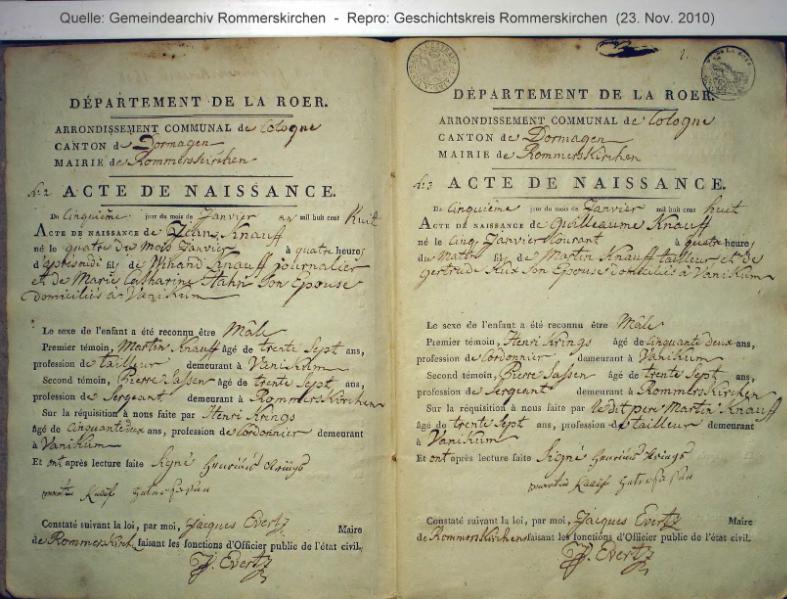 Quelle: Gemeindearchiv Rommerskirchen - Repro: Geschichtskreis Rommerskirchen (23. Nov. 2010)
DÉPARTEMENT DE LA ROER.
ARRONDISSEMENT COMMUNAL de Cologne
CANTON de Dormagen
MAIRIE de Rommerskirchen
No. 2 ACTE DE NAISSANCE.
Du Cinquième jour du mois de Janvier an mil huit cent huit
ACTE DE NAISSANCE de Knauff
né le quatre du Mois Janvier à quatre heures
d'après midi fils de Winand Knauff journalier
et de Marie Catharine Hahn Son Epouse
domiciliés à Vanikum
Le sexe de l'enfant a été reconnu être Mâle
Premier témoin, Martin Knauff âgé de trente Sept ans,
profession de tailleur demeurant à Vanikum
Second témoin, Pierre Sassen âgé de trente Sept ans,
profession de Sergeant demeurant à Rommerskirchen
Sur la réquisition à nous faite par Henri Krings
âgé de Cinquante deux ans, profession de Cordonnier demeurant
à Vanikum
Et ont après lecture faite Signé
Constaté suivant la loi, par moi, Jacques Evertz Maire
de Rommerskirch. faisant les fonctions d'Officier public de l'état civil.
J. Evertz
2.
DÉPARTEMENT DE LA ROER.
ARRONDISSEMENT COMMUNAL de Cologne
CANTON de Dormagen
MAIRIE de Rommerskirchen
No. 3 ACTE DE NAISSANCE.
Du Cinquième jour du mois de Janvier mil huit cent huit
ACTE DE NAISSANCE de Guilleaume Knauff
né le Cinq Janvier Courant à quatre heures
du Matin fils de Martin Knauff tailleur et de
gertrude Son Epouse domiciliés à Vanikum
Le sexe de l'enfant a été reconnu être Mâle
Premier témoin, Henri Krings âgé de Cinquante deux ans,
profession de Cordonnier demeurant à Vanikum
Second témoin, Pierre Sassen âgé de trente Sept ans,
profession de Sergeant demeurant à Rommerskirchen
Sur la réquisition à nous faite par le dit pere Martin Knauff
âgé de trente Sept ans, profession de tailleur demeurant
à Vanikum
Et ont après lecture faite Signé
Constaté suivant la loi, par moi, Jacques Evertz Maire
de Rommerskirchen faisant les fonctions d'Officier public de l'état civil.
J. Evertz